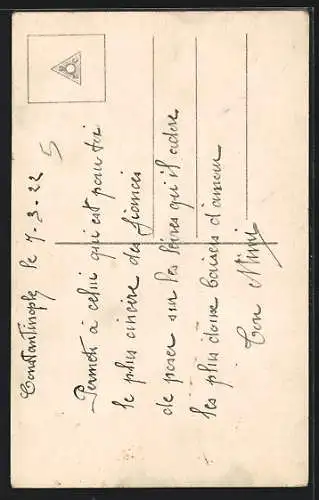 Constantinople le 7-3-22
5
Permets à celui qui est pour toi
le plus sincère des fiancés
de poser sur tes lèvres qu'il adore
les plus doux baisers d'amour
Ton Mimi